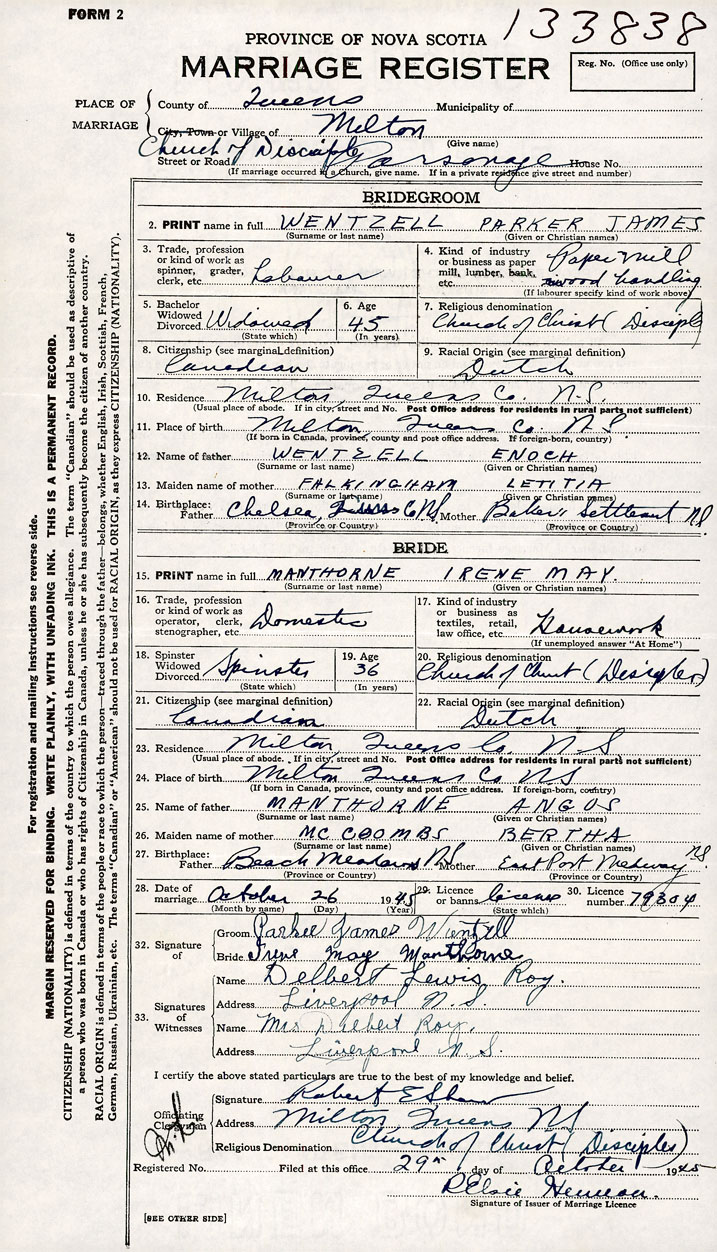 FORM 2
133838
PROVINCE OF NOVA SCOTIA
MARRIAGE REGISTER
Reg. No. (Office use only)
PLACE OF MARRIAGE
County of Queens Municipality of
City, Town or Village of Milton
(Give name)
Church of Disciples Parsonage
Street or Road House No.
(If marriage occurred in a Church, give name. If in a private residence give street and number)
BRIDEGROOM
2. PRINT name in full WENTZELL PARKER JAMES
(Surname or last name) (Given or Christian names)
3. Trade, profession or kind of work as spinner, grader, clerk, etc. Labourer
4. Kind of industry or business as paper mill, lumber, bank, etc. Paper mill wood handling
(If labourer specify kind of work above)
5. Bachelor Widowed Divorced Widowed
(State which)
6. Age 45
(In years)
7. Religious denomination
Church of Christ (Disciple
8. Citizenship (see marginal definition)
Canadian
9. Racial Origin (see marginal definition)
Dutch
10. Residence Milton, Queens Co. N.S.
(Usual place of abode. If in city, street and No. Post Office address for residents in rural parts not sufficient)
11. Place of birth Milton, Queens Co. N S
(If born in Canada, province, county and post office address. If foreign-born, country)
12. Name of father WENTZELL ENOCH
(Surname or last name) (Given or Christian names)
13. Maiden name of mother FALKINGHAM LETITIA
(Surname or last name) (Given or Christian names)
14. Birthplace: Father Chelsea, Co NS Mother Baker Settlement NS
(Province or Country) (Province or Country)
BRIDE
15. PRINT name in full MANTHORNE IRENE MAY.
(Surname or last name) (Given or Christian names)
16. Trade, profession or kind of work as operator, clerk, stenographer, etc. Domestic
17. Kind of industry or business as textiles, retail, law office, etc. Housework
(If unemployed answer "At Home")
18. Spinster Widowed Divorced Spinster
(State which)
19. Age 36
(In years)
20. Religious denomination
Church of Christ (Disciples)
21. Citizenship (see marginal definition)
Canadian
22. Racial Origin (see marginal definition)
Dutch
23. Residence Milton Queens Co. N S
(Usual place of abode. If in city, street and No. Post Office address for residents in rural parts not sufficient)
24. Place of birth Milton Queens Co N S
(If born in Canada, province, county and post office address. If foreign-born, country)
25. Name of father MANTHORNE ANGUS
(Surname or last name) (Given or Christian names)
26. Maiden name of mother MC COOMBS BERTHA
(Surname or last name) (Given or Christian names)
27. Birthplace: Father Beach Meadows NS Mother East Port Medway NS
(Province or Country) (Province or Country)
28. Date of marriage October 26 1945
(Month by name) (Day) (Year)
29. Licence or banns license
(State which)
30. Licence number 79304
32. Signature of
Groom Parker James Wentzell
Bride Irene May Manthorne
33. Signatures of Witnesses
Name Delbert Lewis Roy.
Address Liverpool N.S.
Name Mrs Delbert Roy.
Address Liverpool N.S.
I certify the above stated particulars are true to the best of my knowledge and belief.
Officiating Clergyman
Signature Robert E Shaw
Address Milton Queens NS
Religious Denomination Church of Christ (Disciples)
Registered No. Filed at this office 29th day of October 1945
Elsie
Signature of Issuer of Marriage Licence
[SEE OTHER SIDE]
For registration and mailing instructions see reverse side.
MARGIN RESERVED FOR BINDING. WRITE PLAINLY, WITH UNFADING INK. THIS IS A PERMANENT RECORD.
CITIZENSHIP (NATIONALITY) is defined in terms of the country to which the person owes allegiance. The term "Canadian" should be used as descriptive of
a person who was born in Canada or who has rights of Citizenship in Canada, unless he or she has subsequently become the citizen of another country.
RACIAL ORIGIN is defined in terms of the people or race to which the person—traced through the father—belongs, whether English, Irish, Scottish, French,
German, Russian, Ukrainian, etc. The terms "Canadian" or "American" should not be used for RACIAL ORIGIN, as they express CITIZENSHIP (NATIONALITY).